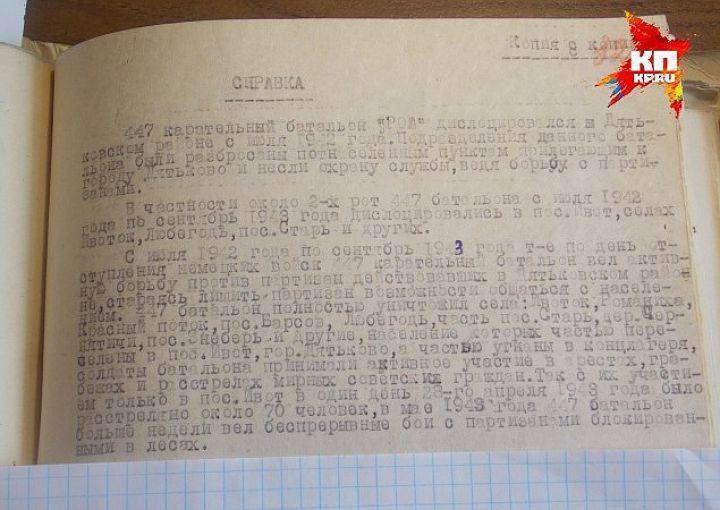 Копия с копии
КП
KP.RU
СПРАВКА
447 карательный батальон "РОА" дислоцировался в Дять-
ковском районе с июля 1942 года. Подразделения данного бата-
льона были разбросаны по населенным пунктам прилегающим к
городу Дятьково и несли охрану службы, ведя борьбу с парти-
занами.
В частности около 2-х рот 447 батальона с июля 1942
года по сентябрь 1943 года дислоцировались в пос. Ивот, селах
Ивоток, Любегодь, пос. Старь и других.
С июля 1942 года по сентябрь 1943 года т-е по день от-
ступления немецких войск 447 карательный батальон вел актив-
ную борьбу против партизан действовавших в Дятьковском район
не, стараясь лишить партизан возможности общаться с населе-
нием. 447 батальон полностью уничтожил села: Ивоток, Романиха,
Красный поток, пос. Барсов, Любегодь, часть пос. Старь, дер. Чер-
нятичи, пос. и другие, население которых частью пере-
селены в пос. Ивот, гор. Дятьково, а частью угнаны в концлагеря,
солдаты батальона принимали активное участие в арестах, гра-
бежах и расстрелах мирных советских граждан. Так с их участи-
ем только в пос. Ивот в один день 28-го апреля 1943 года было
расстреляно около 70 человек, в мае 1943 года 447 батальон
больше недели вел беспрерывные бои с партизанами блокирован-
ными в лесах.